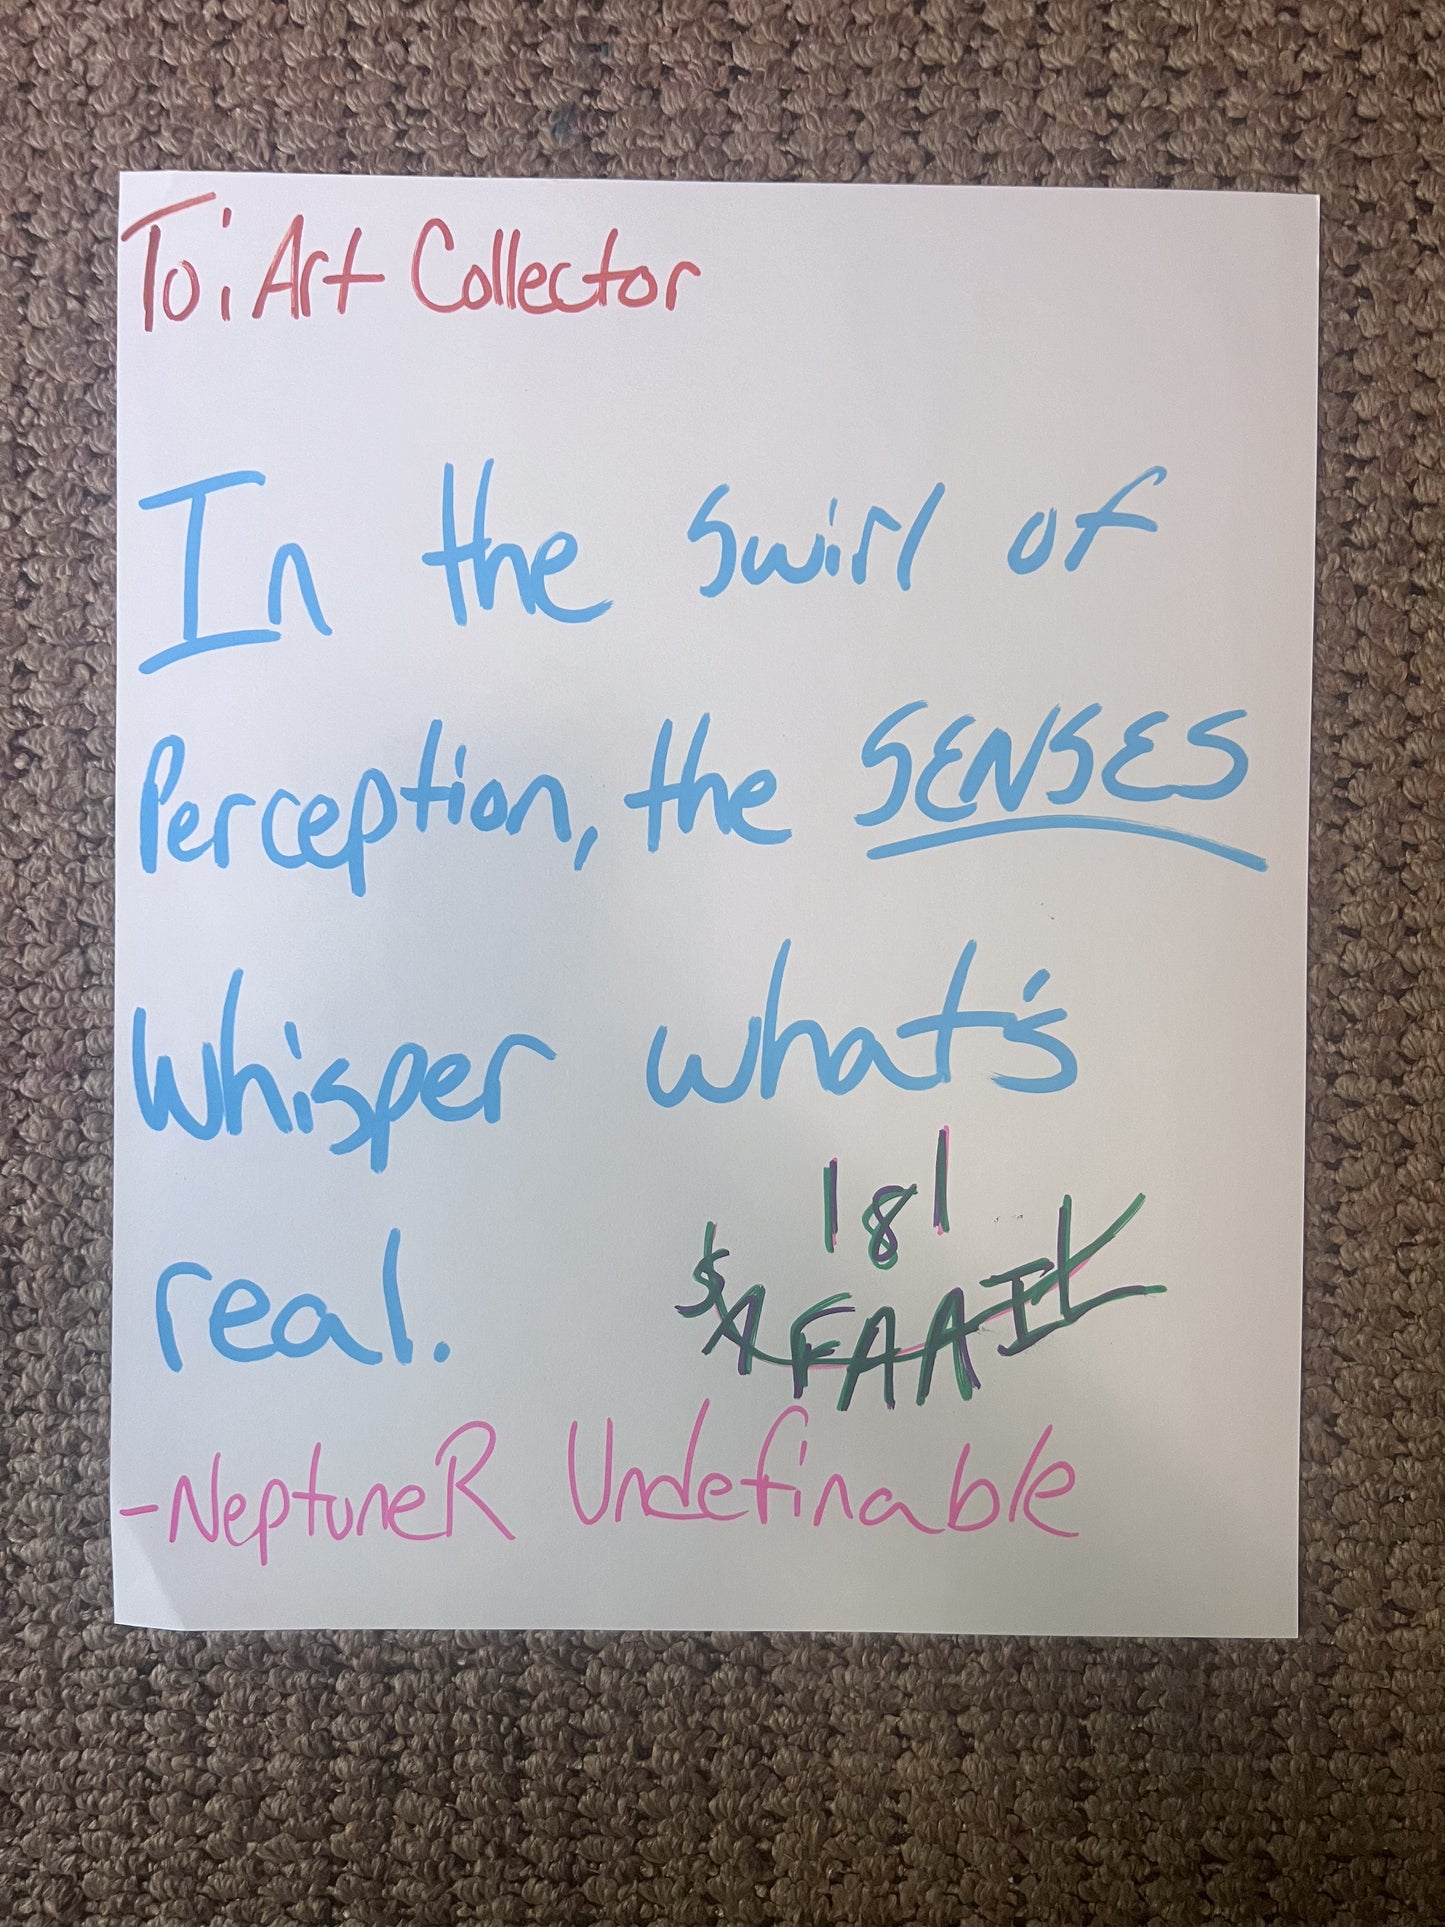 To: Art Collector
In the swirl of
Perception, the SENSES
Whisper what's
real.
181
-NeptuneR Undefinable